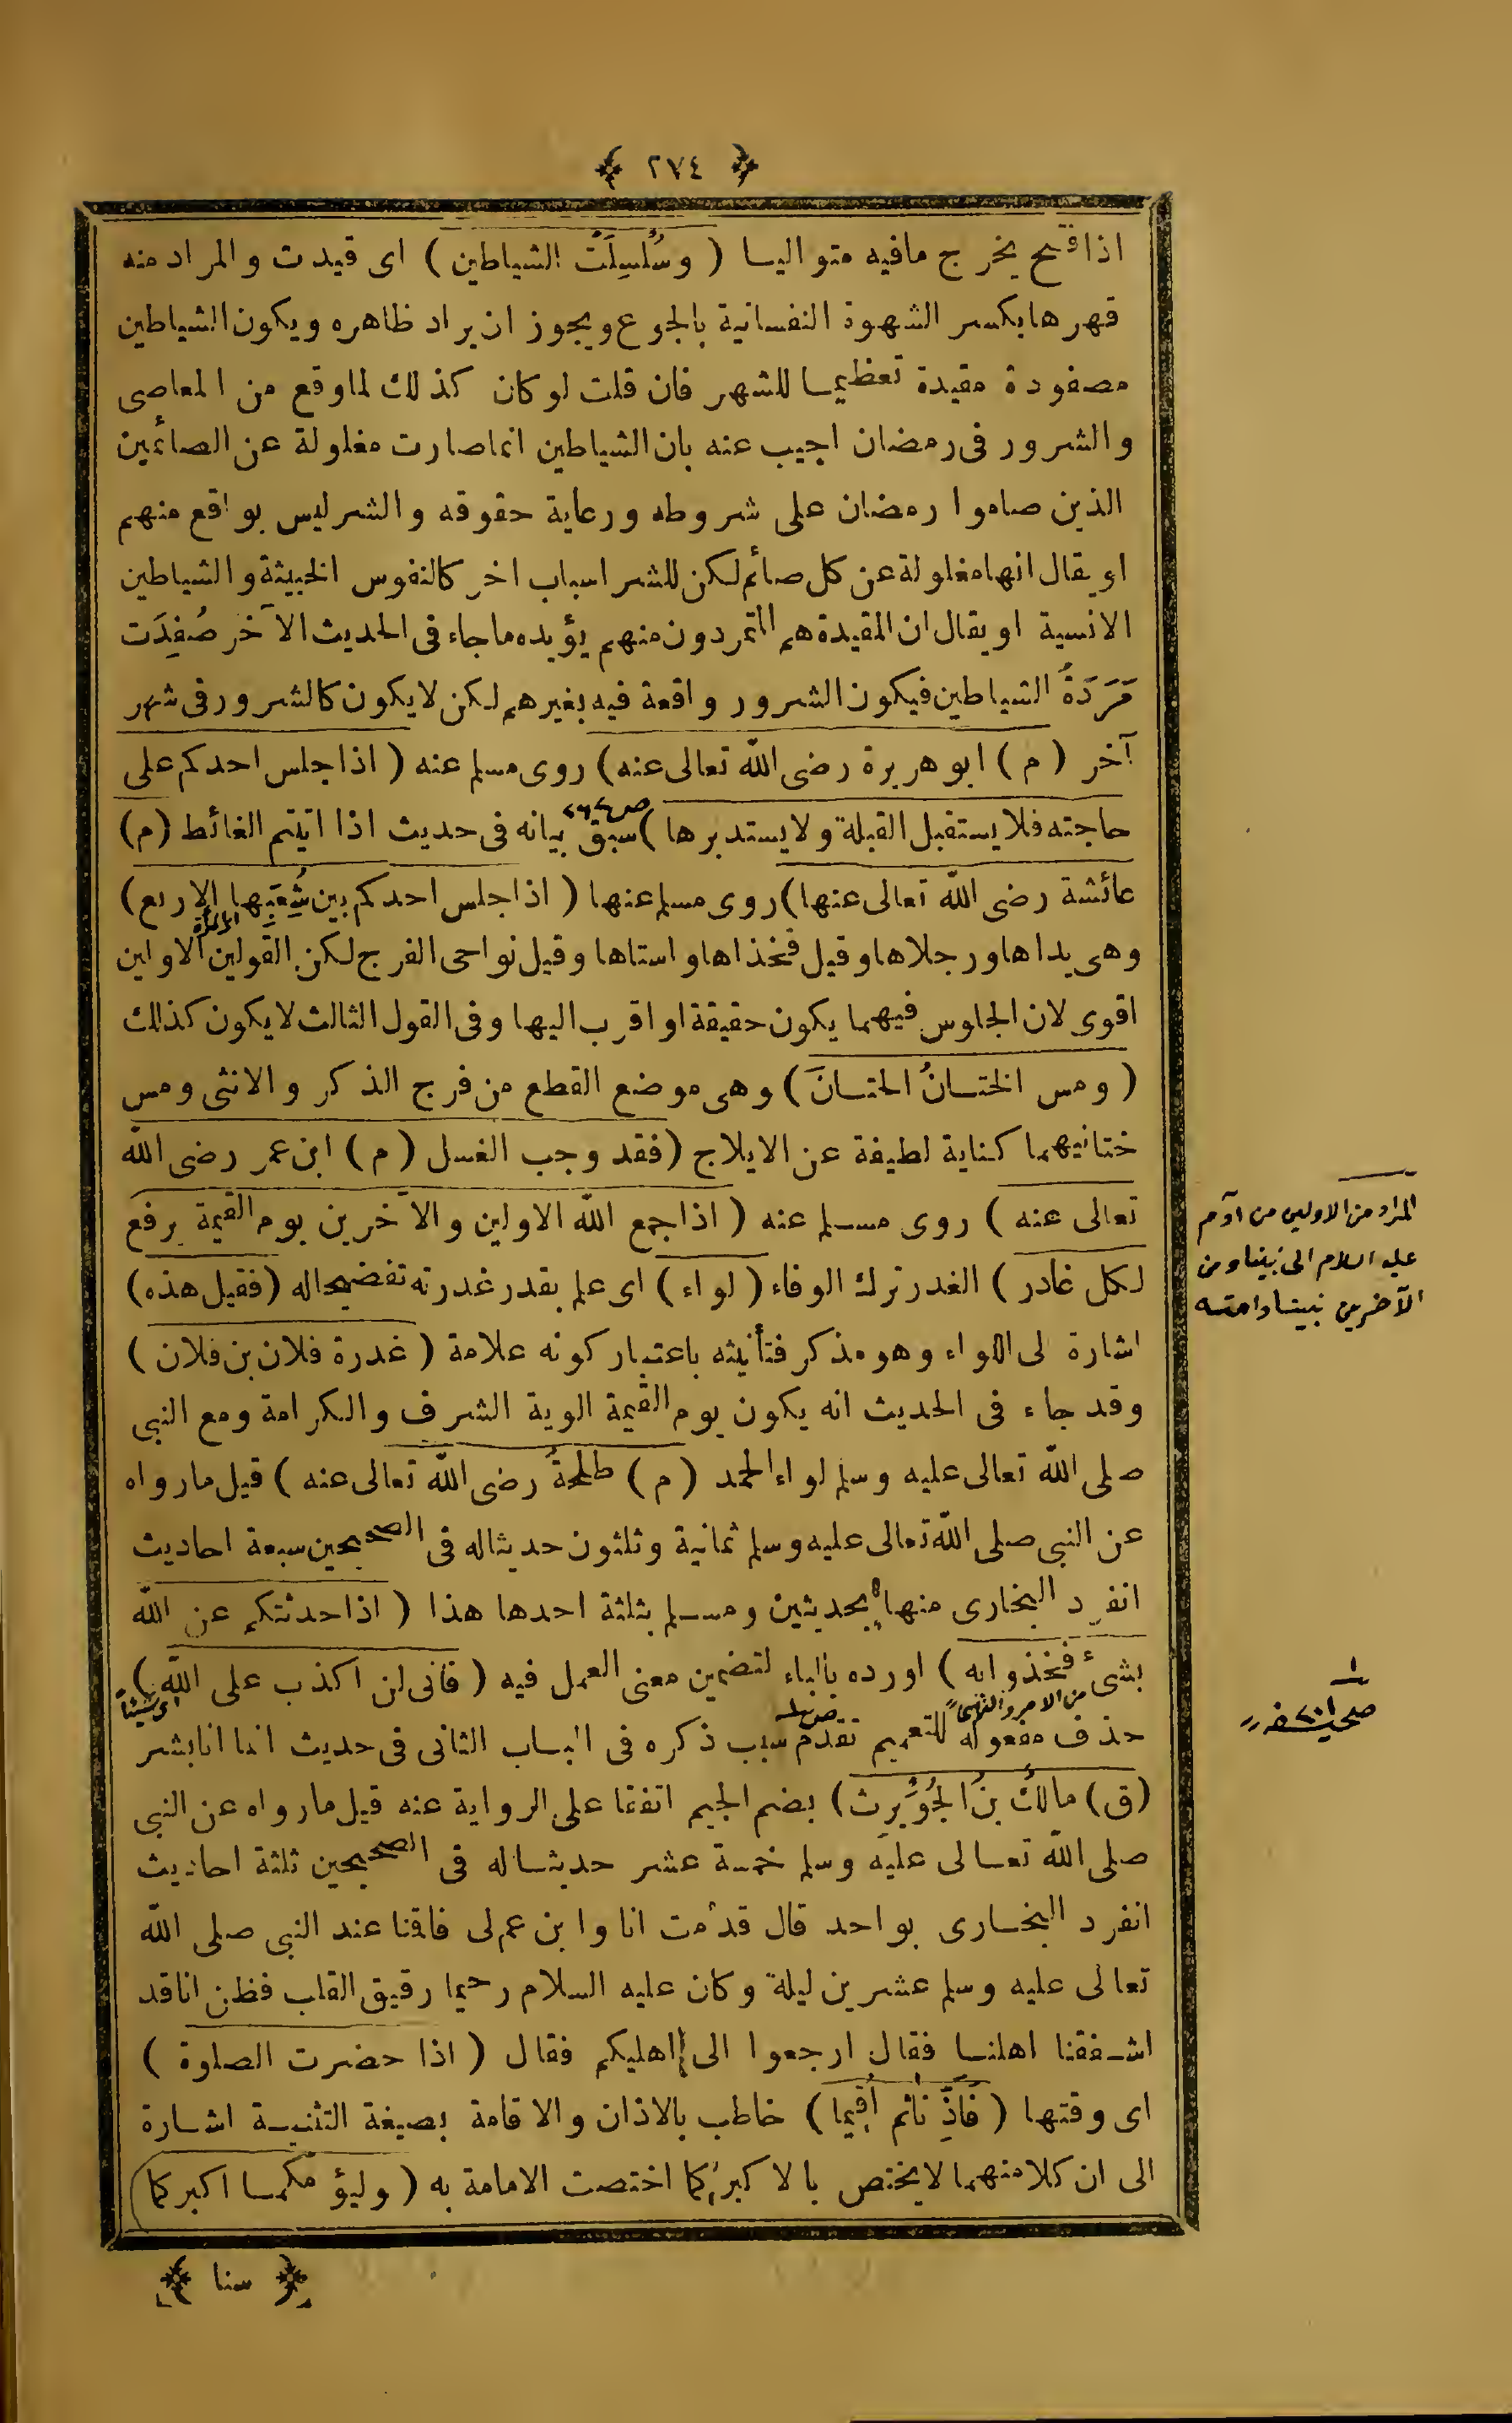 ﴿ ٢٧٤ ﴾
اذا فتح يخرج مافيه متواليا ( وسُلْسِلَتْ الشياطين ) اى قيدت والمراد منه
قهرها بكسر الشهوة النفسانية بالجوع ويجوز ان يراد ظاهره ويكون الشياطين
مصفودة مقيدة تعظيما للشهر فان قلت لو كان كذلك لما وقع من المعاصى
والشرور فى رمضان اجيب عنه بان الشياطين انما صارت مغلولة عن الصائمين
الذين صاموا رمضان على شروطه ورعاية حقوقه والشر ليس بواقع منهم
او يقال انها مغلولة عن كل صائم لكن للشر اسباب اخر كالنفوس الخبيثة والشياطين
الانسية او يقال ان المقيدة هم المتمردون منهم يؤيده ما جاء فى الحديث الآخر صُفِدَت
مَرَدَةُ الشياطين فيكون الشرور واقعة فيه بغيرهم لكن لا يكون كالشرور فى شهر
آخر ( م ) ابو هريرة رضى الله تعالى عنه ) روى مسلم عنه ( اذا جلس احدكم على
حاجته فلا يستقبل القبلة ولا يستدبرها ) سبق بيانه فى حديث اذا اتيتم الغائط (م)
عائشة رضى الله تعالى عنها ) روى مسلم عنها ( اذا جلس احدكم بين شُعَبِها الاربع )
المرأة
وهى يداها ورجلاها وقيل فخذاها واستاها وقيل نواحى الفرج لكن القولين الاولين
اقوى لان الجلوس فيهما يكون حقيقة او اقرب اليها وفى القول الثالث لا يكون كذلك
( ومس الختانُ الختانَ ) وهى موضع القطع من فرج الذكر والانثى ومس
ختانيهما كناية لطيفة عن الايلاج ( فقد وجب الغسل ( م ) ابن عمر رضى الله
تعالى عنه ) روى مسلم عنه ( اذا جمع الله الاولين والآخرين يوم القيمة يرفع
لكل غادر ) الغدر ترك الوفاء ( لواء ) اى علم بقدر غدرته تفضيحا له ( فقيل هذه )
اشارة لى اللواء وهو مذكر فتأنيثه باعتبار كونه علامة ( غدرة فلان بن فلان )
وقد جاء فى الحديث انه يكون يوم القيمة الوية الشرف والكرامة ومع النبى
صلى الله تعالى عليه وسلم لواء الحمد ( م ) طلحةُ رضى الله تعالى عنه ) قيل ما رواه
عن النبى صلى الله تعالى عليه وسلم ثمانية وثلثون حديثا له فى الصحيحين سبعة احاديث
انفرد البخارى منها بحديثين ومسلم بثلثة احدها هذا ( اذا حدثتكم عن الله
بشىء فخذوا به ) اورده بالباء لتضمين معنى العمل فيه ( فانى لن اكذب على الله )
من الامر والنهى
اى شيئاً
حذف مفعوله للتعميم تقدم سبب ذكره فى الباب الثانى فى حديث انما انا بشر
(ق) مالكُ بنُ الحُوَيْرِث ) بضم الجيم اتفقا على الرواية عنه قيل ما رواه عن النبى
صلى الله تعالى عليه وسلم خمسة عشر حديثا له فى الصحيحين ثلثة احاديث
انفرد البخارى بواحد قال قدمت انا وابن عم لى فاقنا عند النبى صلى الله
تعالى عليه وسلم عشرين ليلة وكان عليه السلام رحيما رقيق القلب فظن انا قد
اشفقنا اهلنا فقال ارجعوا الى اهليكم فقال ( اذا حضرت الصلوة )
اى وقتها ( فَاَذِّنا ثم أقيما ) خاطب بالاذان والاقامة بصيغة التثنية اشارة
الى ان كلا منهما لا يختص بالاكبر كما اختصت الامامة به ( وليؤمكما اكبركما )
﴿ سنا ﴾
المراد من الاولين من آدم
عليه السلام الى نبينا ومن
الآخرين نبينا وامته